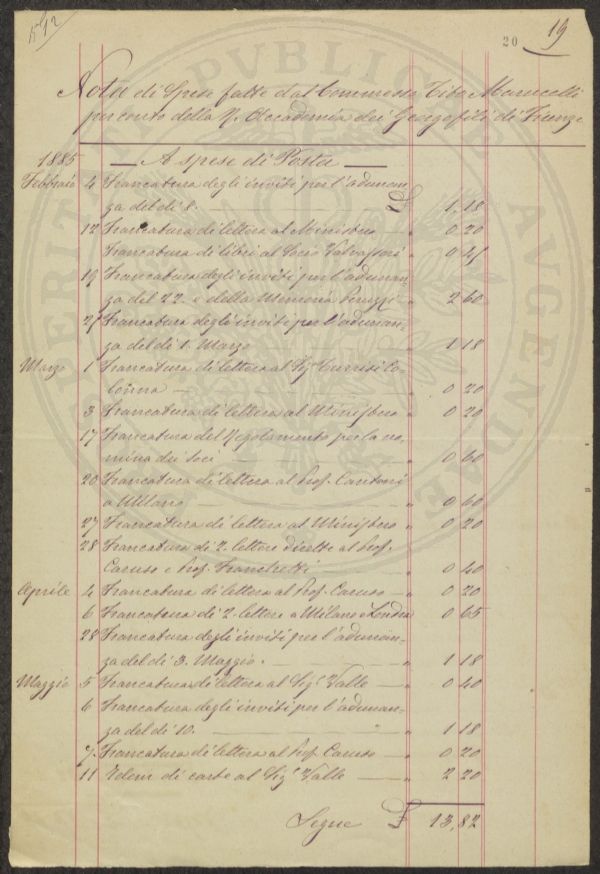 20 19
Nota di Spese fatte dal Commesso Tito Marucelli
per conto della R. Accademia dei Georgofili di Firenze
1885 — A spese di Posta —
Febbraio 4 Francatura degli inviti per l'adunan-
za del dì 8. £ 1,18
12 Francatura di lettera al Ministero " 0 20
Francatura di libri al Socio " 0 45
19 Francatura degli inviti per l'adunan-
za del 22. e della Memoria Peruzzi " 2 60
25 Francatura degli inviti per l'adunan-
za del dì 1. Marzo " 1 18
Marzo 1 Francatura di lettera al Sig. Turrisi Co-
lonna " 0 20
3 Francatura di lettera al Ministero " 0 20
17 Francatura del Regolamento per la no-
mina dei Soci " 0 60
20 Francatura di lettera al Prof. Cantoni
a Milano " 0 60
27 Francatura di lettera al Ministero " 0 20
28 Francatura di 2. lettere dirette al Prof.
Caruso e Prof. Franchetti " 0 40
Aprile 4 Francatura di lettera al Prof. Caruso " 0 20
6 Francatura di 2. lettere a Milano e Londra 0 65
28 Francatura degli inviti per l'adunan-
za del dì 3. Maggio. " 1 18
Maggio 5 Francatura di lettera al Sig.r Valle " 0 40
6 Francatura degli inviti per l'adunan-
za del dì 10. " 1 18
7. Francatura di lettera al Prof. Caruso " 0 20
11 Idem di carte al Sig.r Valle " 2 20
Segue £ 13,82